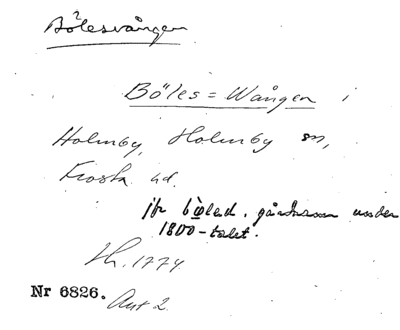 Bölesvången
Böles = Wången i
Holmby, Holmby sn,
Frosta hd.
jfr böled, gårdsnamn under
1800-talet.
Lh. 1774
Nr 6826. Akt 2